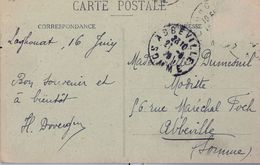 CARTE POSTALE
CORRESPONDANCE
Laghouat, 16 Juin
Bon Souvenir et
à bientôt
ABBEVILLE
SOMME
Dumesnil
Modiste
56 rue Maréchal Foch
Abbeville
(Somme)